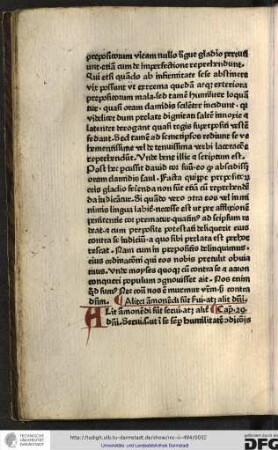 prepositorum vitam nullo ligue gladio percuti
unt. etiā cum de imperfectione reprehendunt.
Qui etsi quādo ab infirmitate sese abstinere
vix possunt vt extrema quedā atq; exteriora
prepositorum mala. sed tamē humiliter loquā
tur. quasi oram clamidis silēter incidunt. q
videlicet dum prelate dignitati saltē innoxie et
latenter derogant quasi regis suppositi vestē
fedant. Sed tamē ad semetipsos redeunt seq; ve
hementissime vel de tenuissima verbi laceratōe
reprehendunt. Vnde bene illic et scriptum est.
Post hec percussit dauid cor suū. eo q abscidissꝫ
oram clamidis saul. Facta quippe prepositorꝝ
oris gladio ferienda non sūt etiā cū reprehendē
da iudicātur. Si quādo vero contra eos vel in mi
nimis lingua labitur. necesse est ut per afflictionē
penitentie cor prematur. quatinus ad seipsum re
deat. et cum preposite potestati deliquerit eius
contra se iudiciū. a quo sibi prelata est perhor
rescat. Nam cum in prepositis delinquimus.
eius ordinacōni qui eos nobis pretulit obuia
mus. Vnde moyses quoq; cū contra se et aaron
conqueri populum agnouisset ait. Nos enim
quid sumus. Nec cōtra nos ē murmur vestrū. sed contra
dūm. Aliter āmonēdi sūt serui. atq; aliter dn̄i.
Aliter āmonēdi sūt serui. atq; aliter Cap. 29
dn̄i. Serui. scilicet ut in se semper humilitatē